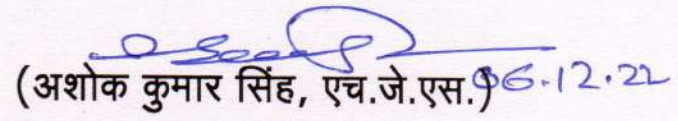 (अशोक कुमार सिंह, एच.जे.एस.) 06.12.22